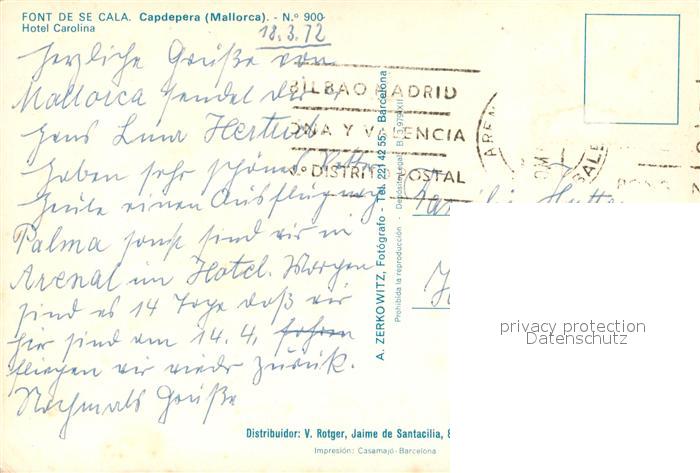 FONT DE SE CALA. Capdepera (Mallorca). - N.º 900
Hotel Carolina
18.3.72
Herzliche Grüße von
Mallorca sendet dir
Hans Luna
haben sehr schönes Wetter
heute einen Ausflug nach
Palma sonst sind wir in
Arenal im Hotel. Morgen
sind es 14 Tage daß wir
hier sind am 14.4. fahren
fliegen wir wieder zurück.
Nochmals Grüße
BILBAO MADRID
ONA Y VALENCIA
N.º DISTRITO POSTAL
Familie
A. ZERKOWITZ, Fotógrafo - Tel. 221 42 55. Barcelona
Prohibida la reproducción - Depósito Legal B.
privacy protection
Datenschutz
Distribuidor: V. Rotger, Jaime de Santacilia, 8
Impresión: Casamajó-Barcelona